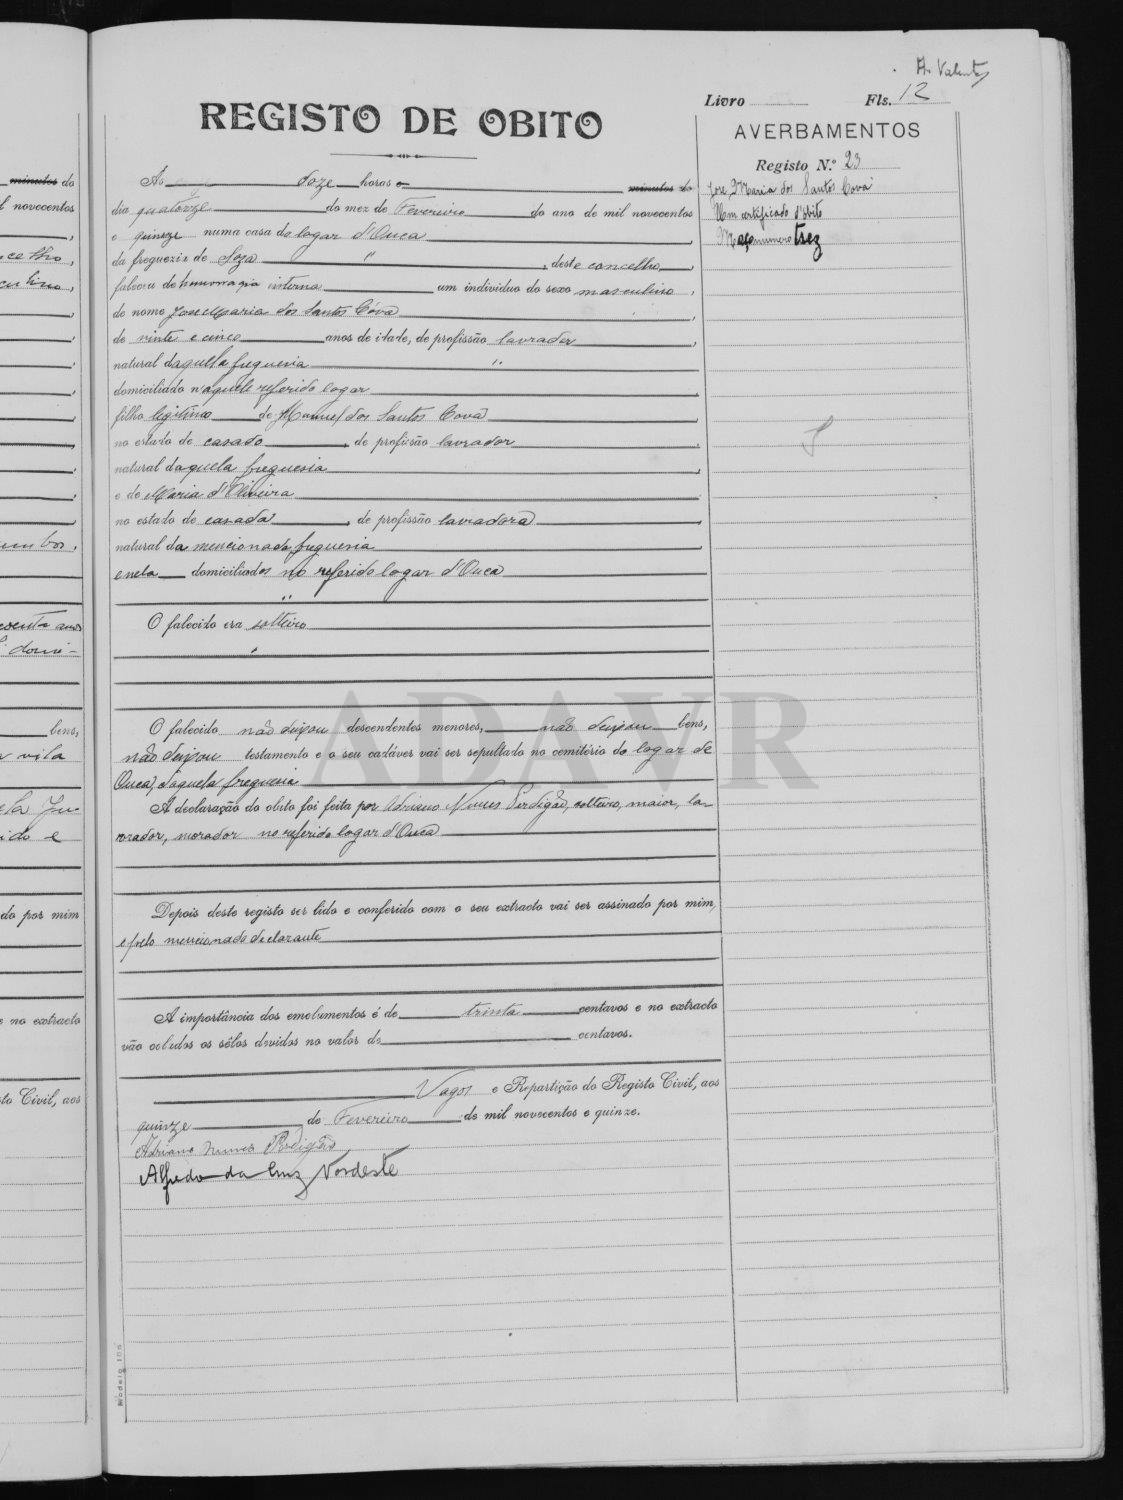 A. Valente
Livro Fls. 12
REGISTO DE OBITO
AVERBAMENTOS
Registo N.º 23
José Maria dos Santos Cova
Um certificado d'óbito
Maço numero trez
minutos do
l novecentos
As doze horas e minutos do
dia quatorze do mez de Fevereiro do ano de mil novecentos
e quinze numa casa do logar d'Ouca
da freguezia de Soza " , deste concelho,
faleceu de hemorragia interna um individuo do sexo masculino,
de nome José Maria dos Santos Cóva
de vinte e cinco anos de idade, de profissão lavrador
natural daquella freguesia "
domiciliado n'aquele referido logar
filho legitimo de Manuel dos Santos Cova
no estado de casado, de profissão lavrador
natural daquela freguesia
e de Maria d'Oliveira
no estado de casada, de profissão lavradora
natural da mencionada freguesia
e nela domiciliados no referido logar d'Ouca
"
O falecido era solteiro
"
O falecido não deixou descendentes menores, não deixou bens,
não deixou testamento e o seu cadáver vai ser sepultado no cemitério do logar de
Ouca, daquela freguesia
A declaração do obito foi feita por Adriano Nunes Perdigão, solteiro, maior, la-
vrador, morador no referido logar d'Ouca
Depois deste registo ser lido e conferido com o seu extracto vai ser assinado por mim,
e pelo mencionado declarante
A importância dos emolumentos é de trinta centavos e no extracto
vão colados os sêlos devidos no valor de centavos.
Vagos e Repartição do Registo Civil, aos
quinze de Fevereiro de mil novecentos e quinze.
Adriano Nunes Perdigão
Alfredo da Cruz Nordeste
Modelo 186
ADAVR
bens,
vila
ido e
do por mim
e no extracto
to Civil, aos